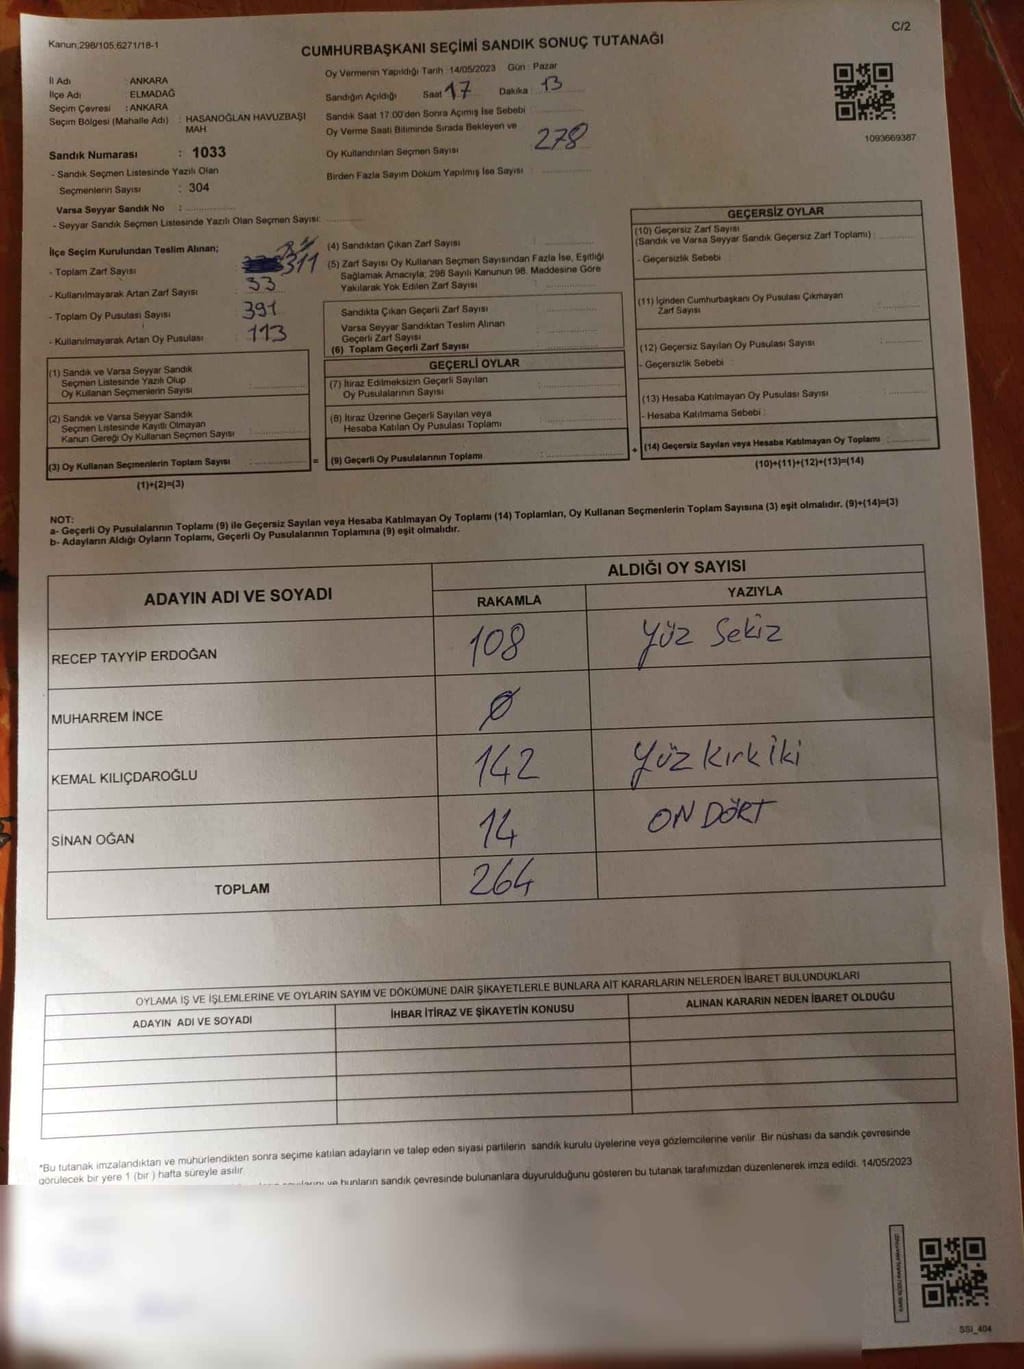 Kanun;298/105,6271/18-1
C/2
CUMHURBAŞKANI SEÇİMİ SANDIK SONUÇ TUTANAĞI
İl Adı : ANKARA
İlçe Adı : ELMADAĞ
Seçim Çevresi : ANKARA
Seçim Bölgesi (Mahalle Adı) : HASANOĞLAN HAVUZBAŞI
MAH
Sandık Numarası : 1033
- Sandık Seçmen Listesinde Yazılı Olan
Seçmenlerin Sayısı : 304
Varsa Seyyar Sandık No :
- Seyyar Sandık Seçmen Listesinde Yazılı Olan Seçmen Sayısı:
Oy Vermenin Yapıldığı Tarih :14/05/2023 Gün : Pazar
Sandığın Açıldığı Saat 17 Dakika : 13
Sandık Saat 17.00'den Sonra Açımış İse Sebebi :
Oy Verme Saati Bitiminde Sırada Bekleyen ve
Oy Kullandırılan Seçmen Sayısı : 278
Birden Fazla Sayım Döküm Yapılmış İse Sayısı :
1093669387
İlçe Seçim Kurulundan Teslim Alınan;
- Toplam Zarf Sayısı : 311
- Kullanılmayarak Artan Zarf Sayısı : 33
- Toplam Oy Pusulası Sayısı : 391
- Kullanılmayarak Artan Oy Pusulası : 113
(1) Sandık ve Varsa Seyyar Sandık
Seçmen Listesinde Yazılı Olup
Oy Kullanan Seçmenlerin Sayısı :
(2) Sandık ve Varsa Seyyar Sandık
Seçmen Listesinde Kayıtlı Olmayan
Kanun Gereği Oy Kullanan Seçmen Sayısı :
(3) Oy Kullanan Seçmenlerin Toplam Sayısı :
(1)+(2)=(3)
=
(4) Sandıktan Çıkan Zarf Sayısı :
(5) Zarf Sayısı Oy Kullanan Seçmen Sayısından Fazla İse, Eşitliği
Sağlamak Amacıyla; 298 Sayılı Kanunun 98. Maddesine Göre
Yakılarak Yok Edilen Zarf Sayısı :
Sandıkta Çıkan Geçerli Zarf Sayısı :
Varsa Seyyar Sandıktan Teslim Alınan
Geçerli Zarf Sayısı :
(6) Toplam Geçerli Zarf Sayısı :
GEÇERLİ OYLAR
(7) İtiraz Edilmeksizin Geçerli Sayılan
Oy Pusulalarının Sayısı :
(8) İtiraz Üzerine Geçerli Sayılan veya
Hesaba Katılan Oy Pusulası Toplamı :
(9) Geçerli Oy Pusulalarının Toplamı :
+
GEÇERSİZ OYLAR
(10) Geçersiz Zarf Sayısı
(Sandık ve Varsa Seyyar Sandık Geçersiz Zarf Toplamı) :
- Geçersizlik Sebebi :
(11) İçinden Cumhurbaşkanı Oy Pusulası Çıkmayan
Zarf Sayısı :
(12) Geçersiz Sayılan Oy Pusulası Sayısı :
- Geçersizlik Sebebi :
(13) Hesaba Katılmayan Oy Pusulası Sayısı :
- Hesaba Katılmama Sebebi :
(14) Geçersiz Sayılan veya Hesaba Katılmayan Oy Toplamı :
(10)+(11)+(12)+(13)=(14)
NOT:
a- Geçerli Oy Pusulalarının Toplamı (9) ile Geçersiz Sayılan veya Hesaba Katılmayan Oy Toplamı (14) Toplamları, Oy Kullanan Seçmenlerin Toplam Sayısına (3) eşit olmalıdır. (9)+(14)=(3)
b- Adayların Aldığı Oyların Toplamı, Geçerli Oy Pusulalarının Toplamına (9) eşit olmalıdır.
ADAYIN ADI VE SOYADI
ALDIĞI OY SAYISI
RAKAMLA YAZIYLA
RECEP TAYYİP ERDOĞAN 108 Yüz Sekiz
MUHARREM İNCE 0
KEMAL KILIÇDAROĞLU 142 Yüz Kırk İki
SİNAN OĞAN 14 ON DÖRT
TOPLAM 264
OYLAMA İŞ VE İŞLEMLERİNE VE OYLARIN SAYIM VE DÖKÜMÜNE DAİR ŞİKAYETLERLE BUNLARA AİT KARARLARIN NELERDEN İBARET BULUNDUKLARI
ADAYIN ADI VE SOYADI İHBAR İTİRAZ VE ŞİKAYETİN KONUSU ALINAN KARARIN NEDEN İBARET OLDUĞU
*Bu tutanak imzalandıktan ve mühürlendikten sonra seçime katılan adayların ve talep eden siyasi partilerin sandık kurulu üyelerine veya gözlemcilerine verilir. Bir nüshası da sandık çevresinde
görülecek bir yere 1 (bir ) hafta süreyle asılır.
ve bunların sandık çevresinde bulunanlara duyurulduğunu gösteren bu tutanak tarafımızdan düzenlenerek imza edildi. 14/05/2023
SSİ_404